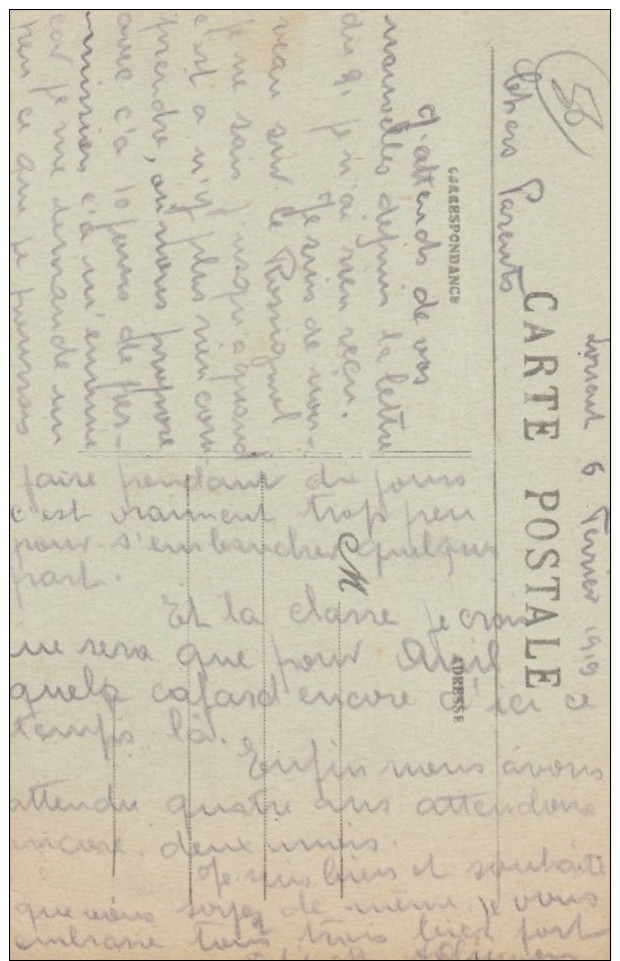 56
Lorient 6 Fevrier 1919
CARTE POSTALE
CORRESPONDANCE
ADRESSE
Chers Parents
J'attends de vos
nouvelles depuis la lettre
du 9, je n'ai rien reçu.
Je suis de nou-
veau sur le Rossignol
je ne sais jusqu'a quand
c'est a n'y plus rien com
prendre, on nous propose
avec ç'a 10 jours de per-
missions ç'a m'ennuie
car je me demande un
peu ce que je pourrais
faire pendant dix jours
c'est vraiment trop peu
pour s'embaucher quelque
part.
Et la classe je crois
ne sera que pour Avril
quelp cafard encore d'ici ce
temps là.
Enfin nous avons
attendu quatre ans attendons
encore deux mois.
Je suis bien et souhaite
que vous soyez de même, je vous
embrasse tous trois bien fort